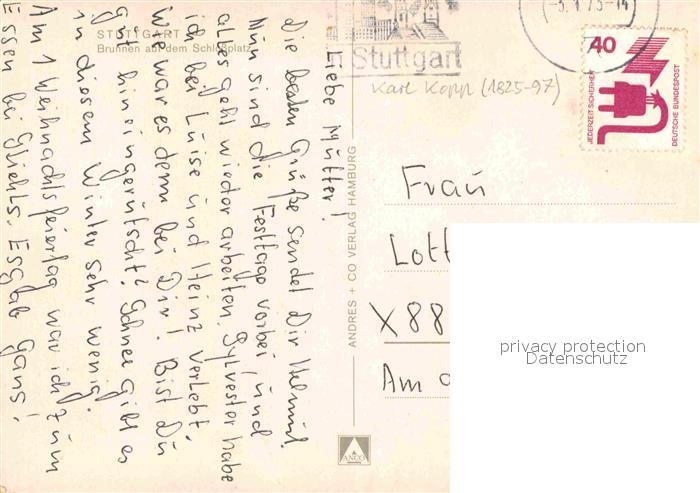 STUTTGART
Brunnen auf dem Schloßplatz
Liebe Mutter!
Die besten Grüße sendet Dir Helmut.
Nun sind die Festtage vorbei, und
alles geht wieder arbeiten. Sylvester habe
ich bei Luise und Heinz verlebt.
Wie war es denn bei Dir? Bist Du
gut hineingerutscht? Schnee gibt es
in diesem Winter sehr wenig.
Am 1 Weihnachtsfeiertag war ich zum
Essen bei Es gab Gans!
ANDRES + CO VERLAG HAMBURG
ANCO
in Stuttgart
Karl Kopp (1825-97)
40
JEDERZEIT SICHERHEIT
DEUTSCHE BUNDESPOST
Frau
Lott
X88
Am
privacy protection
Datenschutz